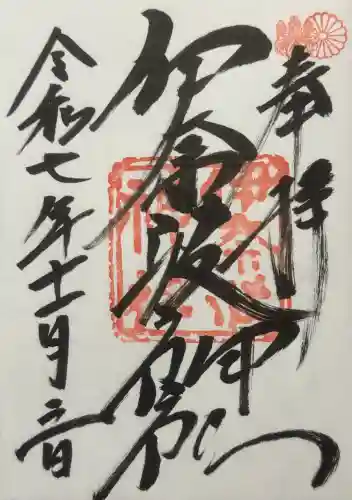 奉拝
伊奈波神社
令和七年十一月二日